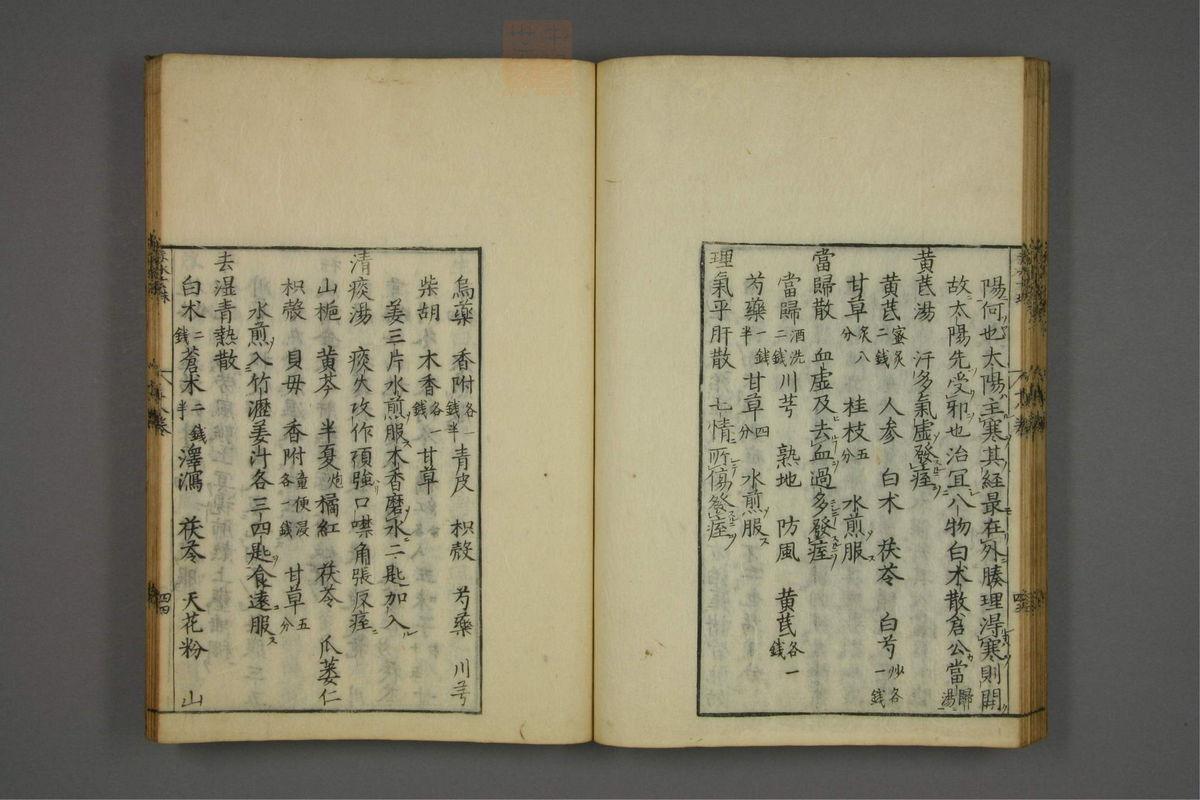 陽何也太陽主寒其経最在外腠理得寒則開
故太陽先受邪也治冝八物白术散倉公當歸湯
黄芪湯 汗多氣虛發痓
黄芪蜜炙二錢 人参 白术 茯苓 白芍炒各一錢
甘草炙八分 桂枝五分 水煎服
當歸散 血虛及去血過多發痓
當歸酒洗二錢 川芎 熟地 防風 黄芪各一錢
芍藥一錢半 甘草四分 水煎服
理氣平肝散 七情所傷發痓
烏藥 香附各一錢半 青皮 枳殻 芍藥 川芎
柴胡 木香各一錢 甘草
姜三片水煎服木香磨水二匙加入
清痰湯 痰火攻作項強口噤角張反痓
山梔 黄芩 半夏炮 橘紅 茯苓 瓜蒌仁
枳殻 貝母 香附童便浸各一錢 甘草五分
水煎入竹瀝姜汁各三四匙食遠服
去湿青熱散
白术二錢 蒼术二錢半 澤瀉 茯苓 天花粉 山